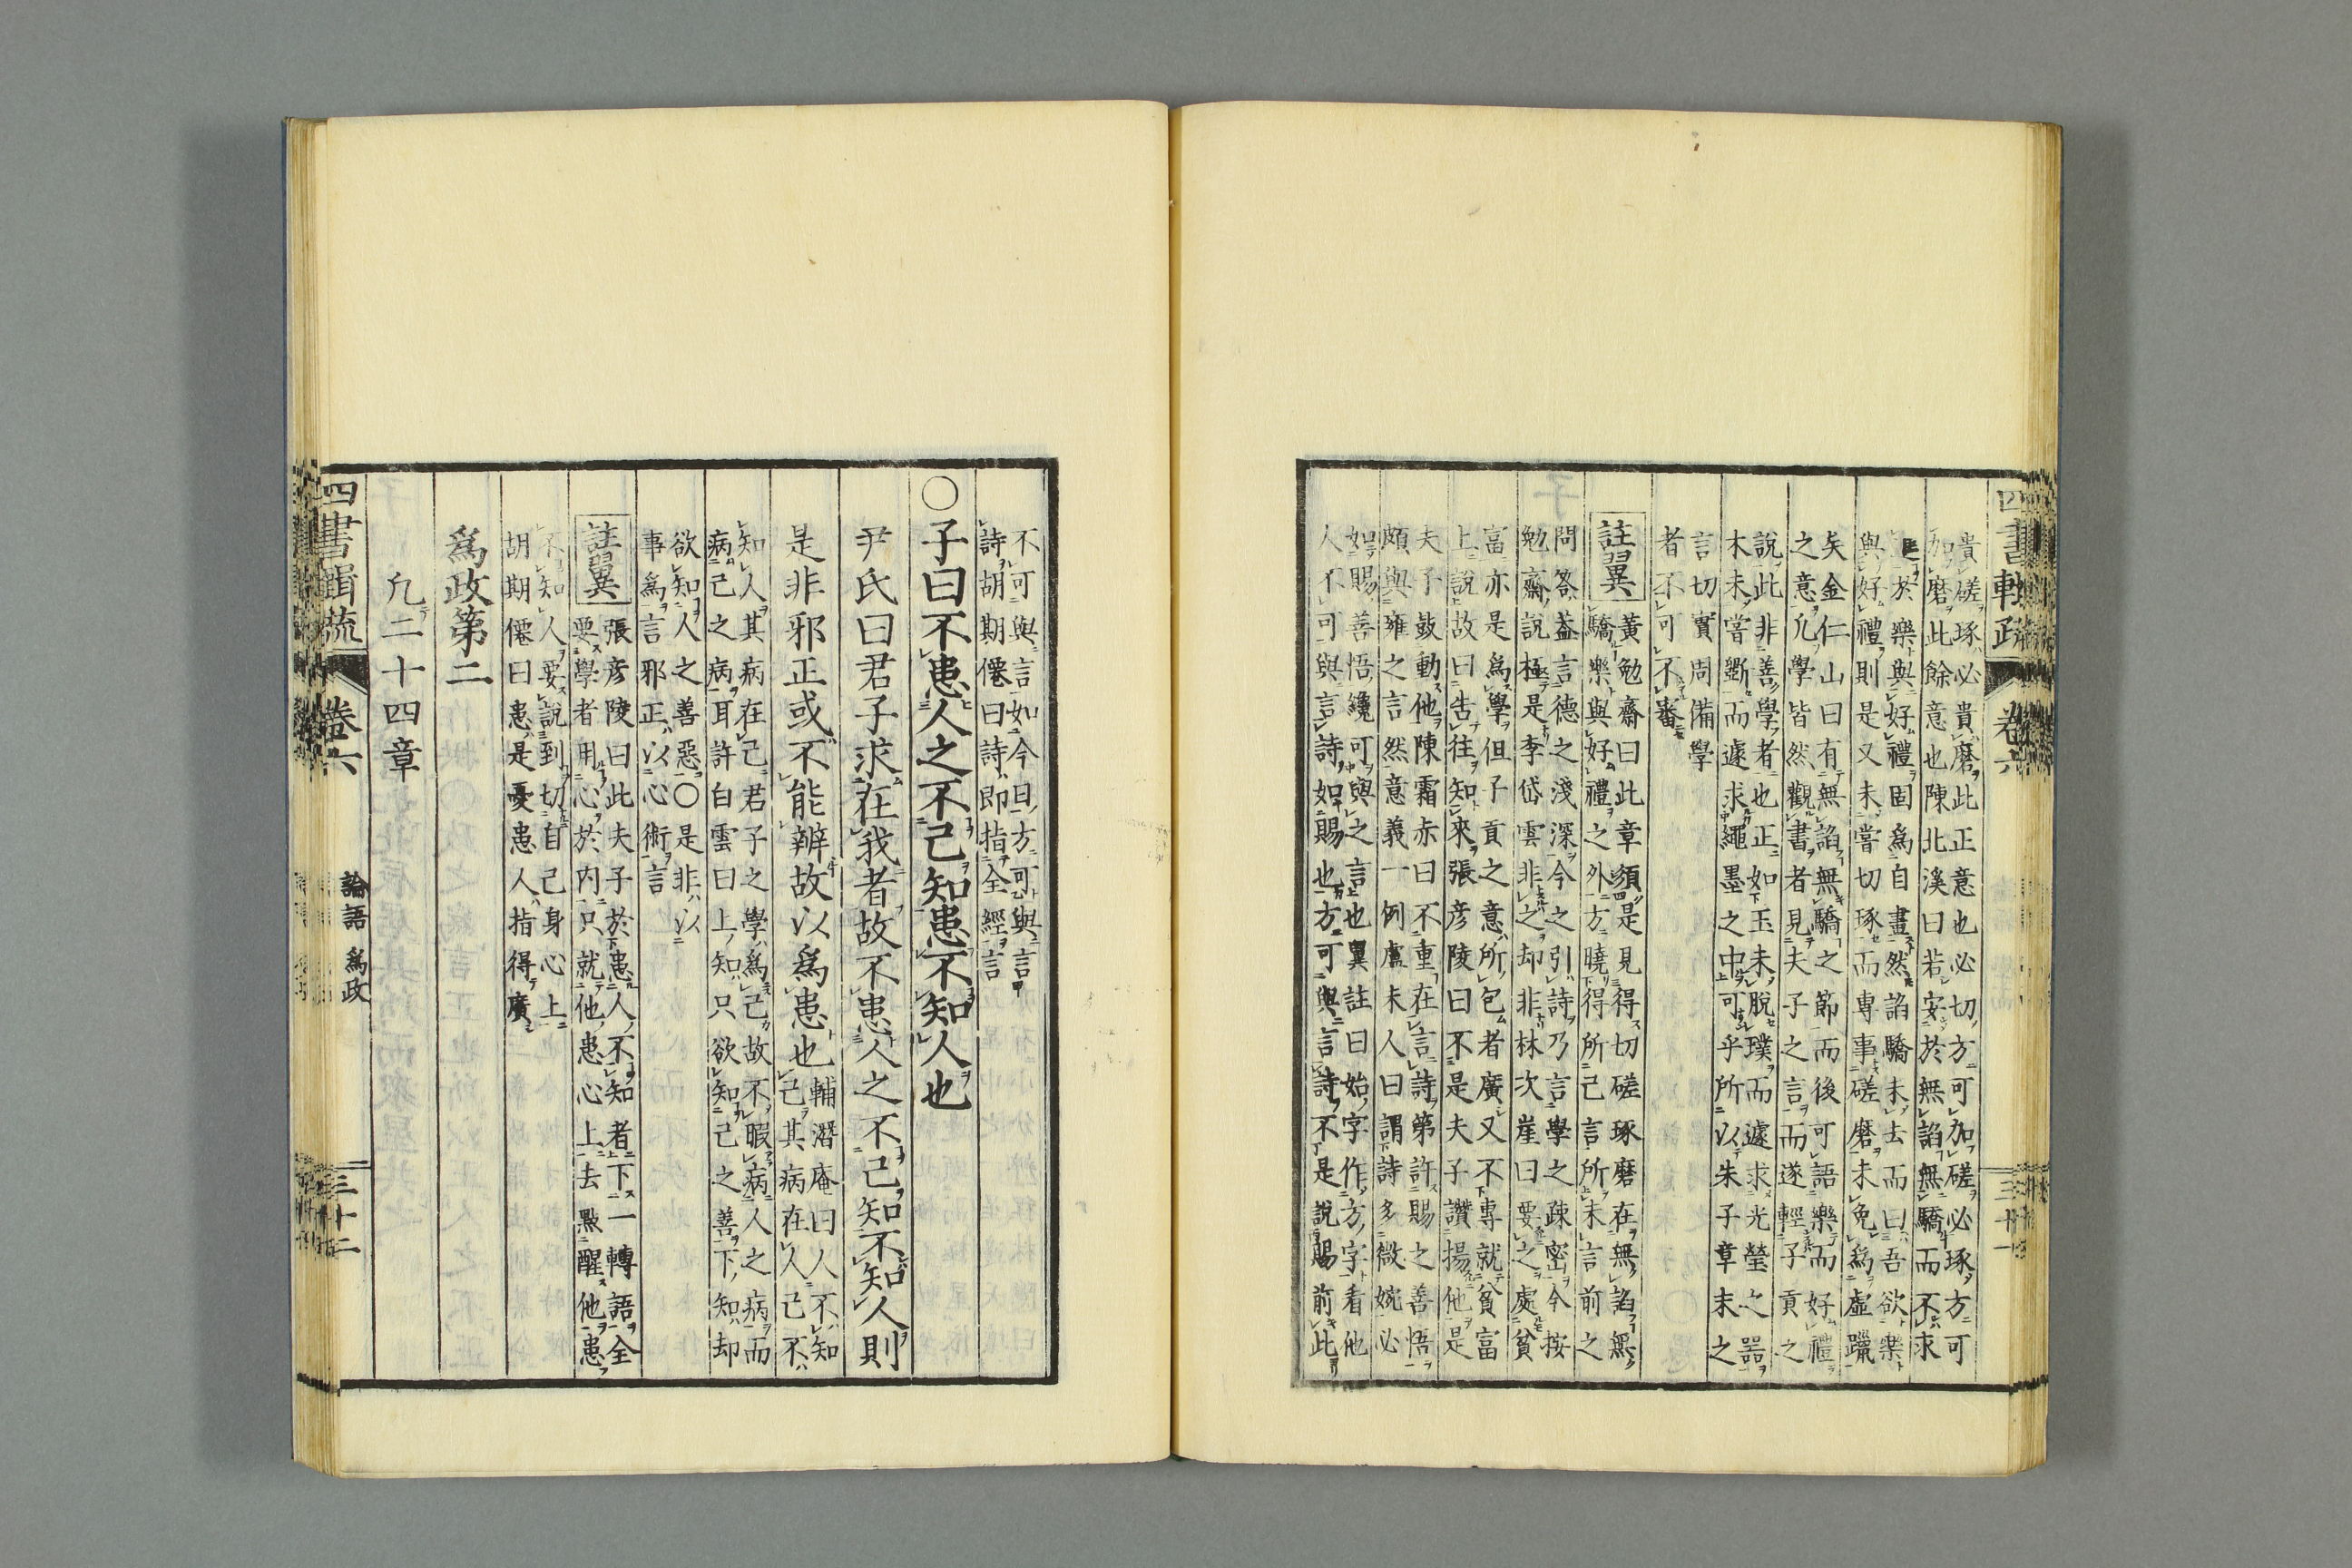 四書輯疏 卷六 三十一
貴磋琢必貴磨此正意也必切方可加磋必琢方可
加磨此餘意也陳北溪曰若安於無諂無驕而不求
至於樂與好禮固爲自畫然諂驕未去而曰吾欲樂
與好禮則是又未嘗切琢而專事磋磨未免爲虛躐
矣金仁山曰有無諂無驕之節而後可語樂而好禮
之意凡學皆然觀書者見夫子之言而遂輕子貢之
說此非善學者也正如玉未脫璞而遽求光瑩之器
木未嘗斲而遽求繩墨之中可乎所以朱子章末之
言切實周備學
者不可不審
註翼
黃勉齋曰此章須是見得切磋琢磨在無諂無
驕樂與好禮之外方曉得所已言所未言前之
問答蓋言德之淺深今之引詩乃言學之疎密今按
勉齋說極是李岱雲非之却非林次崖曰要之處貧
富亦是爲學但子貢之意所包者廣又不專就貧富
上說故曰告往知來張彦陵曰不是夫子讚揚他是
夫子鼓動他陳霜赤曰不重在言詩第許賜之善悟
頗與雍之言然意義一例盧未人曰謂詩多微婉必
如賜善悟纔可與之言也翼註曰始字作方字看他
人不可與言詩如賜也方可與言詩不是說賜前此
不可與言如今日方可與言
詩胡期僊曰詩即指全經言
○子曰不患人之不己知患不知人也
尹氏曰君子求在我者故不患人之不己知不知人則
是非邪正或不能辨故以爲患也
輔潛庵曰人不知
己其病在人己不
知人其病在己君子之學爲己故不暇病人之病而
病己之病耳許白雲曰上知只欲知己之善下知却
欲知人之善惡○是非以
事爲言邪正以心術言
註翼
張彦陵曰此夫子於患人不知者下一轉語全
要學者用心於內只就他患心上去點醒他患
不知人要說到切自己身心上
胡期僊曰患是憂患人指得廣
爲政第二
凡二十四章
四書輯疏 卷六 論語 爲政 三十二